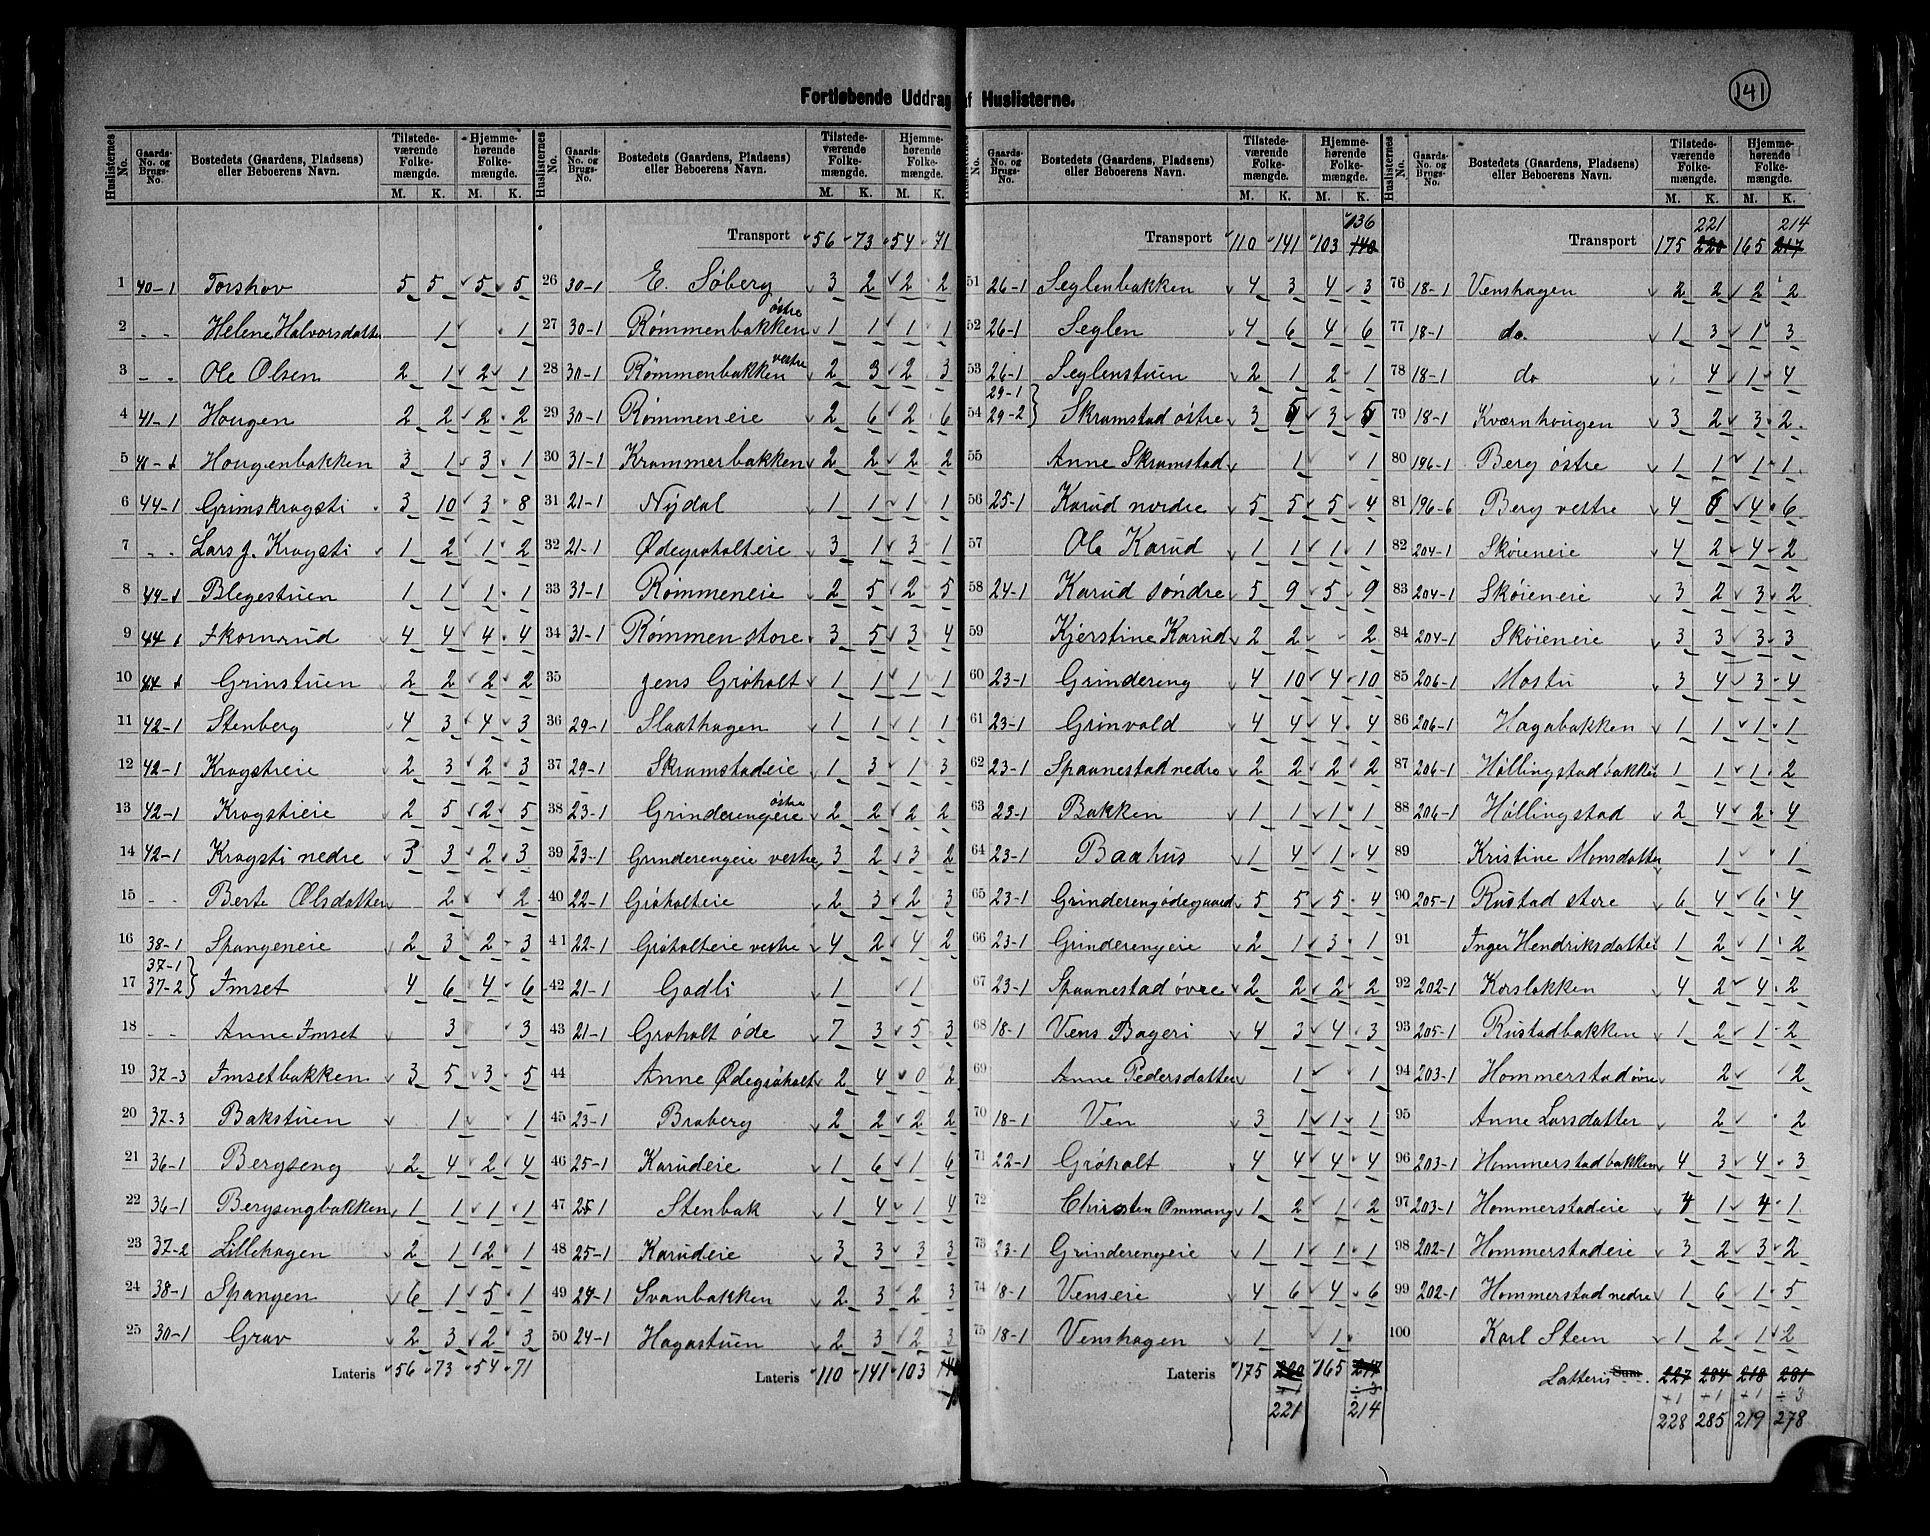 141
Fortløbende Uddrag af Huslisterne.
Huslisternes No. Gaards-No. og Brugs-No. Bostedets (Gaardens, Pladsens) eller Beboerens Navn. Tilstedeværende Folkemængde. M. K. Hjemmehørende Folkemængde. M. K.
1 40-1 Torshov 5 5 5 5
2 - - Helene Halvorsdatter 1 1
3 - - Ole Olsen 2 1 2 1
4 41-1 Hougen 2 2 2 2
5 41-1 Hougenbakken 3 1 3 1
6 44-1 Grimskragsti 3 10 3 8
7 - - Lars J. Kragsti 1 2 1 2
8 44-1 Blegestuen 1 1 1 1
9 44-1 Skomrud 4 4 4 4
10 44-1 Grinstuen 2 2 2 2
11 42-1 Stenberg 4 3 4 3
12 42-1 Kragstieie 2 3 2 3
13 42-1 Kragstieie 2 5 2 5
14 42-1 Kragsti nedre 3 3 2 3
15 - - Berte Olsdatter 2 2
16 38-1 Spangeneie 2 3 2 3
17 37-1 37-2 Imset 4 6 4 6
18 - - Anne Imset 3 3
19 37-3 Imsetbakken 3 5 3 5
20 37-3 Bakstuen 1 1
21 36-1 Bergseng 2 4 2 4
22 36-1 Bergsengbakken 1 1 1 1
23 37-2 Lillehagen 2 1 2 1
24 38-1 Spangen 6 1 5 1
25 30-1 Grav 2 3 2 3
Lateris 56 73 54 71
Huslisternes No. Gaards-No. og Brugs-No. Bostedets (Gaardens, Pladsens) eller Beboerens Navn. Tilstedeværende Folkemængde. M. K. Hjemmehørende Folkemængde. M. K.
Transport 56 73 54 71
26 30-1 E. Søberg 3 2 2 2
27 30-1 Rømmenbakken østre 1 1 1 1
28 30-1 Rømmenbakken vestre 2 3 2 3
29 30-1 Rømmeneie 2 6 2 6
30 31-1 Krammerbakken 2 2 2 2
31 21-1 Nydal 1 1 1 1
32 21-1 Ødegrøholteie 3 1 3 1
33 31-1 Rømmeneie 2 5 2 5
34 31-1 Rømmen store 3 5 3 4
35 Jens Grøholt 1 1 1 1
36 29-1 Slaathagen 1 1 1 1
37 29-1 Skramstadeie 1 3 1 3
38 23-1 Grinderengeie østre 2 2 2 2
39 23-1 Grinderengeie vestre 3 2 3 2
40 22-1 Grøholteie 2 3 2 3
41 22-1 Grøholteie vestre 4 2 4 2
42 21-1 Godli 1 1
43 21-1 Grøholt øde 7 3 5 3
44 Anne Ødegrøholt 2 4 0 2
45 23-1 Braberg 2 2 2 2
46 25-1 Karudeie 1 6 1 6
47 25-1 Stenbak 1 4 1 4
48 25-1 Karudeie 3 3 3 3
49 24-1 Svanbakken 2 3 2 3
50 24-1 Hagastuen 2 3 2 3
Lateris 110 141 103
Huslisternes No. Gaards-No. og Brugs-No. Bostedets (Gaardens, Pladsens) eller Beboerens Navn. Tilstedeværende Folkemængde. M. K. Hjemmehørende Folkemængde. M. K.
136
Transport 110 141 103 140
51 26-1 Seglenbakken 4 3 4 3
52 26-1 Seglen 4 6 4 6
53 26-1 Seglenstuen 2 1 2 1
54 29-1 29-2 Skramstad østre 3 5 3 5
55 Anne Skramstad 1 1
56 25-1 Karud nordre 5 5 5 4
57 Ole Karud 1 1 1 1
58 24-1 Karud søndre 5 9 5 9
59 Kjerstine Karud 2 2 2
60 23-1 Grindereng 4 10 4 10
61 23-1 Grinvold 4 4 4 4
62 23-1 Spaanestad nedre 2 2 2 2
63 23-1 Bakken 1 1 1 1
64 23-1 Baahus 1 4 1 4
65 23-1 Grinderengødegaard 5 5 5 4
66 23-1 Grinderengeie 2 1 3 1
67 23-1 Spaanestad øvre 2 2 2 2
68 18-1 Vens Bageri 4 3 4 3
69 Anne Pedersdatter 1 1
70 18-1 Ven 3 1 1 1
71 22-1 Grøholt 4 4 4 4
72 Christen Ommang 1 2 1 2
73 23-1 Grinderengeie 1 1 1 1
74 18-1 Venseie 4 6 4 6
75 18-1 Venshagen 1 1
Lateris 175 220 165 217
+1 ÷3
221 214
Huslisternes No. Gaards-No. og Brugs-No. Bostedets (Gaardens, Pladsens) eller Beboerens Navn. Tilstedeværende Folkemængde. M. K. Hjemmehørende Folkemængde. M. K.
221 214
Transport 175 220 165 217
76 18-1 Venshagen 2 2 2 2
77 18-1 do. 1 3 1 3
78 18-1 do 4 1 4
79 18-1 Kværnhougen 3 2 3 2
80 196-1 Berg østre 1 1 1 1
81 196-6 Berg vestre 4 6 4 6
82 204-1 Skøieneie 4 2 4 2
83 204-1 Skøieneie 3 2 3 2
84 204-1 Skøieneie 3 3 3 3
85 206-1 Mostu 3 4 3 4
86 206-1 Hagabakken 1 1 1 1
87 206-1 Høllingstadbakken 1 1 1 2
88 206-1 Høllingstad 2 4 2 4
89 Kristine Monsdatter 1 1
90 205-1 Rustad store 6 4 6 4
91 Inger Hendriksdatter 1 2 1 2
92 202-1 Korsbakken 4 2 4 2
93 205-1 Rustadbakken 1 2 1 2
94 203-1 Hommerstad øvre 2 2
95 Anne Larsdatter 2 2
96 203-1 Hommerstadbakken 4 3 4 3
97 203-1 Hommerstadeie 4 1 4 1
98 202-1 Hommerstadeie 3 2 3 2
99 202-1 Hommerstad nedre 1 6 1 5
100 Karl Steen 1 2 1 2
Latteris Sum. 227 284 218 281
+1 +1 +1 ÷3
228 285 219 278